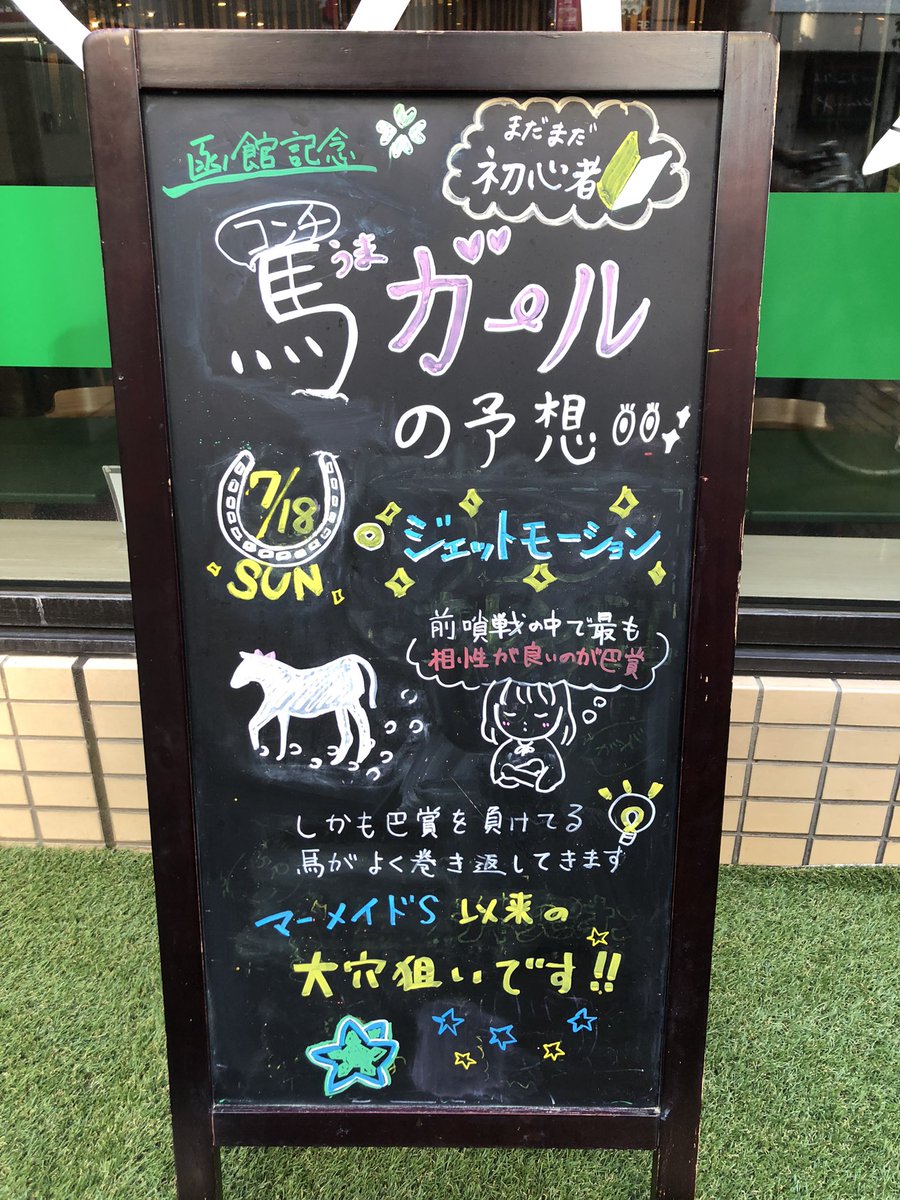 函館記念
まだまだ
初心者
コンチ
馬うまガール
の予想
7/18
SUN
◎ジェットモーション
前哨戦の中で最も
相性が良いのが巴賞
しかも巴賞を負けてる
馬がよく巻き返してきます
マーメイドS 以来の
大穴狙いです!!